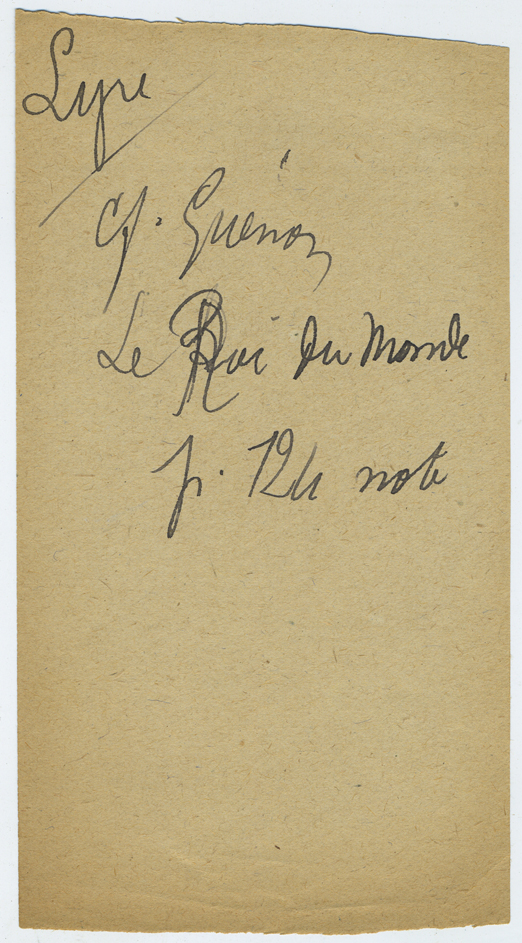 Lyre
cf. Guénon
Le Roi du Monde
p. 124 note